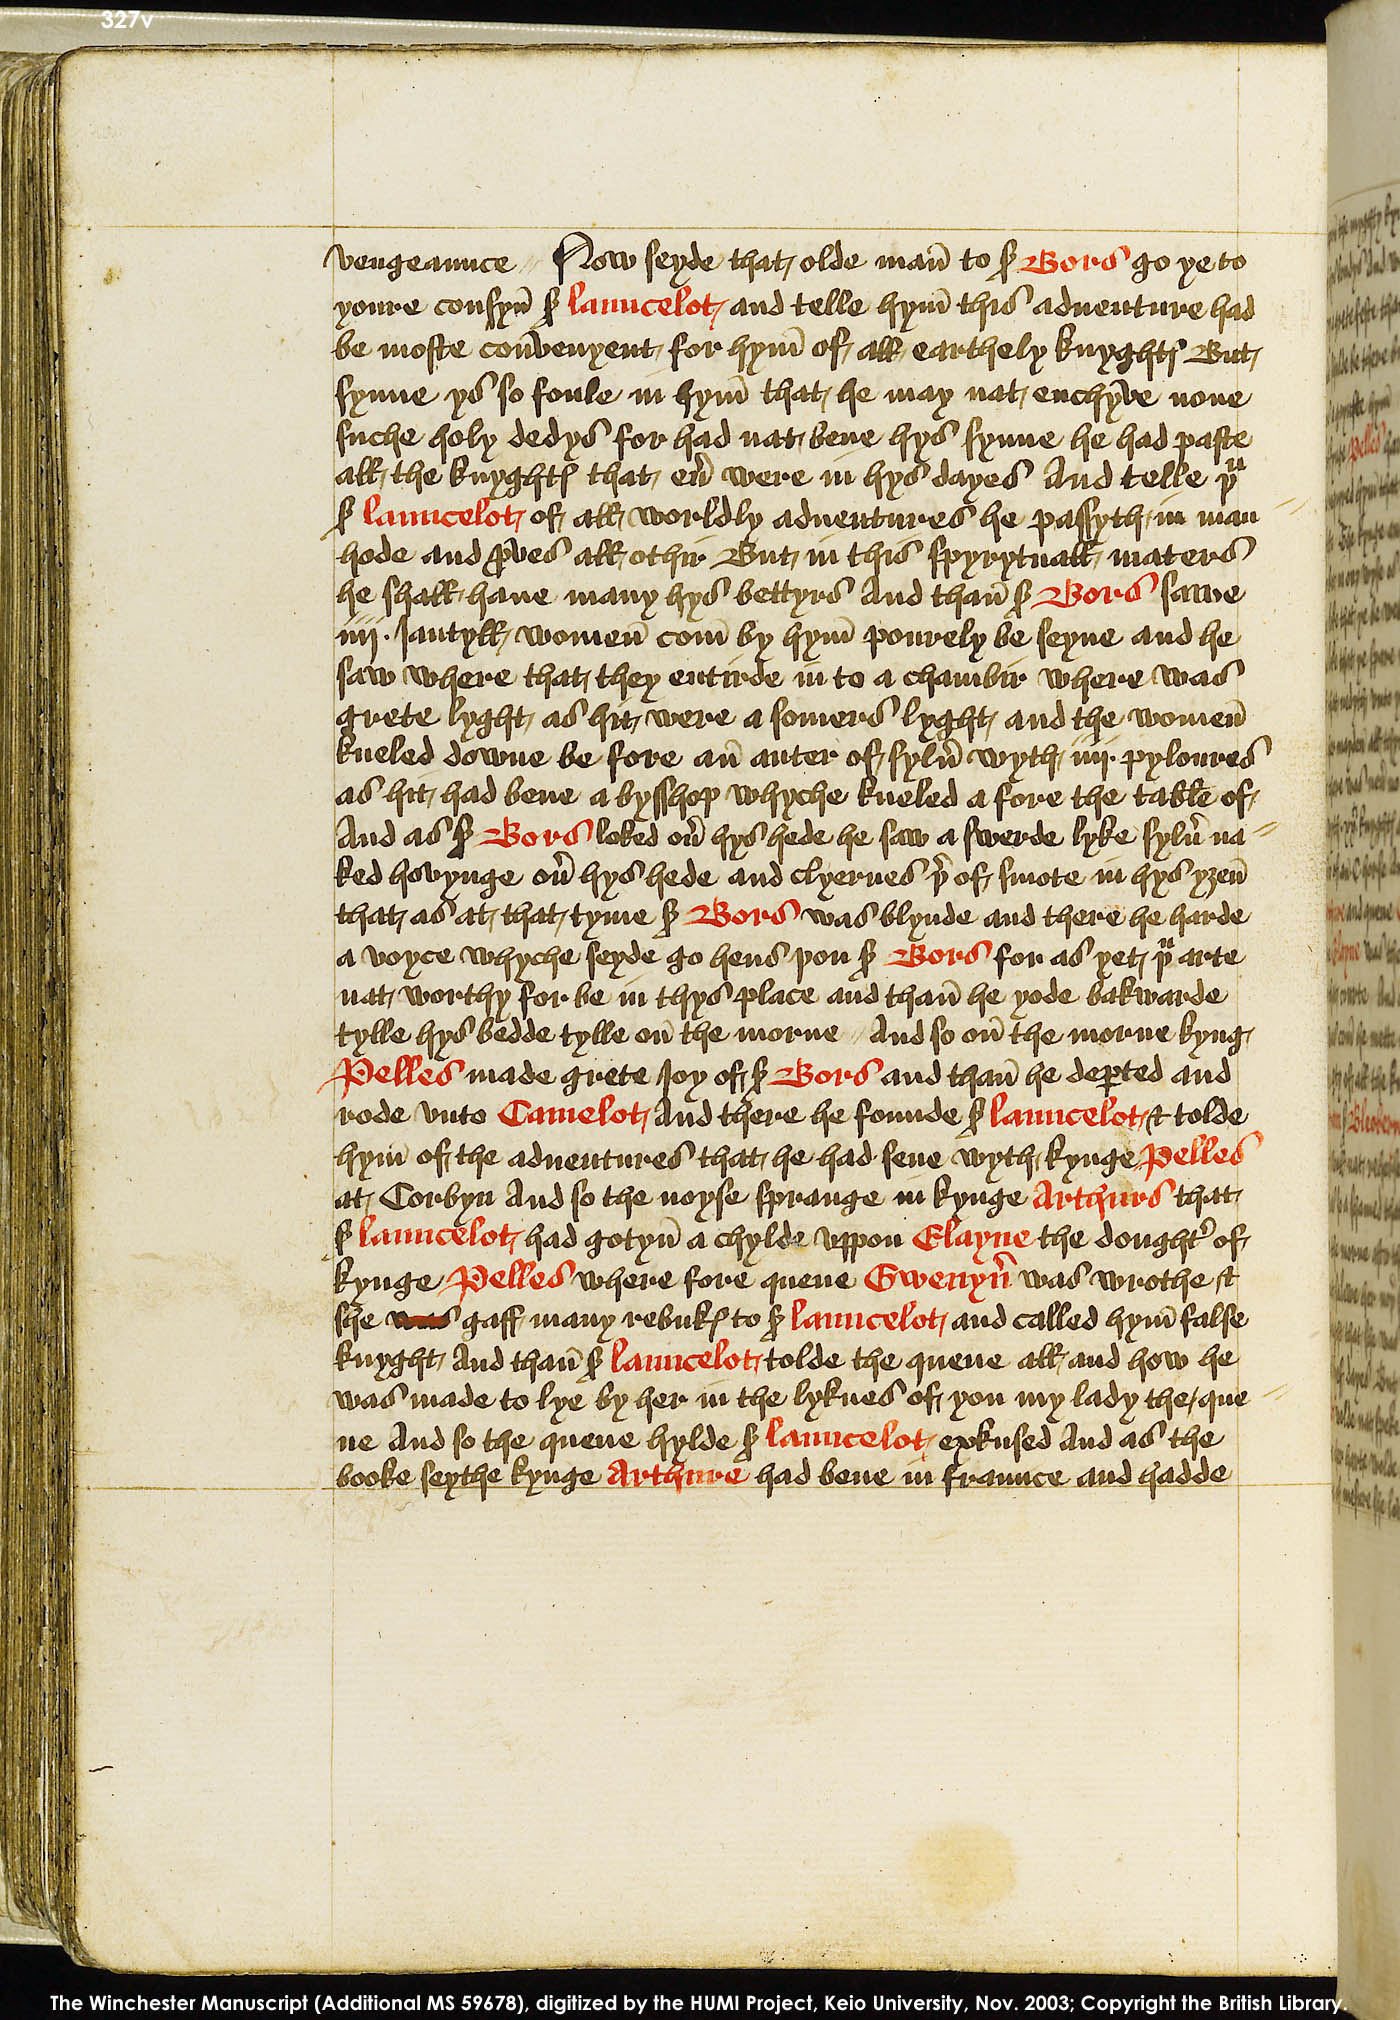 327v
vengeaunce Now seyde that olde man̄ to ẜ Bors go ye to
youre consyn̄ ẜ launcelot and telle hym̄ this aduenture had
be moste conv̄enyent for hym̄ of all earthely knyghtꝭ But
synne ys so foule in hym̄ that he may nat enchyv̄e none
suche holy dedys for had nat bene hys synne he had paste
all the knyghtꝭ that eu̾ were in hys dayes And telle þͧ
ẜ launcelot of all worldly aduentures he passyth in man
hode and ꝓves all othir But in this spyrytuall maters
he shall haue many hys bettyrs And than̄ ẜ Bors sawe
iiij. Jantyll women̄ com̄ by hym̄ pourely be seyne and he
saw where that they entirde in to a chambir where was
grete lyght as hit were a somers lyght and the women̄
kneled downe be fore an̄ auter of sylu̾ wyth iiij. pyloures
as hit had bene a bysshop whyche kneled a fore the table of
And as ẜ Bors loked ou̾ hys hede he saw a swerde lyke sylu̾ na
ked hovynge ou̾ hys hede and clyernes þ̾of smote in hys yȝen̄
that as at that tyme ẜ Bors was blynde and there he harde
a voyce whyche seyde go hens þou ẜ Bors for as yet þͧ arte
nat worthy for be in thys place and than̄ he yode bakwarde
tylle hys bedde tylle on̄ the morne And so on̄ the morne kyng
Pelles made grete Joy of ẜ Bors and than̄ he deꝑted and
rode vnto Camelot And there he founde ẜ launcelot & tolde
hym̄ of the aduentures that he had sene wyth kynge Pelles
at Corbyn And so the noyse sprange in kynge Arthurs that
ẜ launcelot had gotyn̄ a chylde vppon Elayne the dought̾ of
kynge Pelles where fore quene Gwenyu̾ was wrothe &
she was gaff many rebukꝭ to ẜ launcelot and called hym̄ false
knyght And than̄ ẜ launcelot tolde the quene all and how he
was made to lye by her in the lyknes of you my lady the que
ne And so the quene hylde ẜ launcelot exkused And as the
booke seythe kynge Arthure had bene in fraunce and hadde
The Winchester Manuscript (Additional MS 59678), digitized by the HUMI Project, Keio University, Nov. 2003; Copyright the British Library.